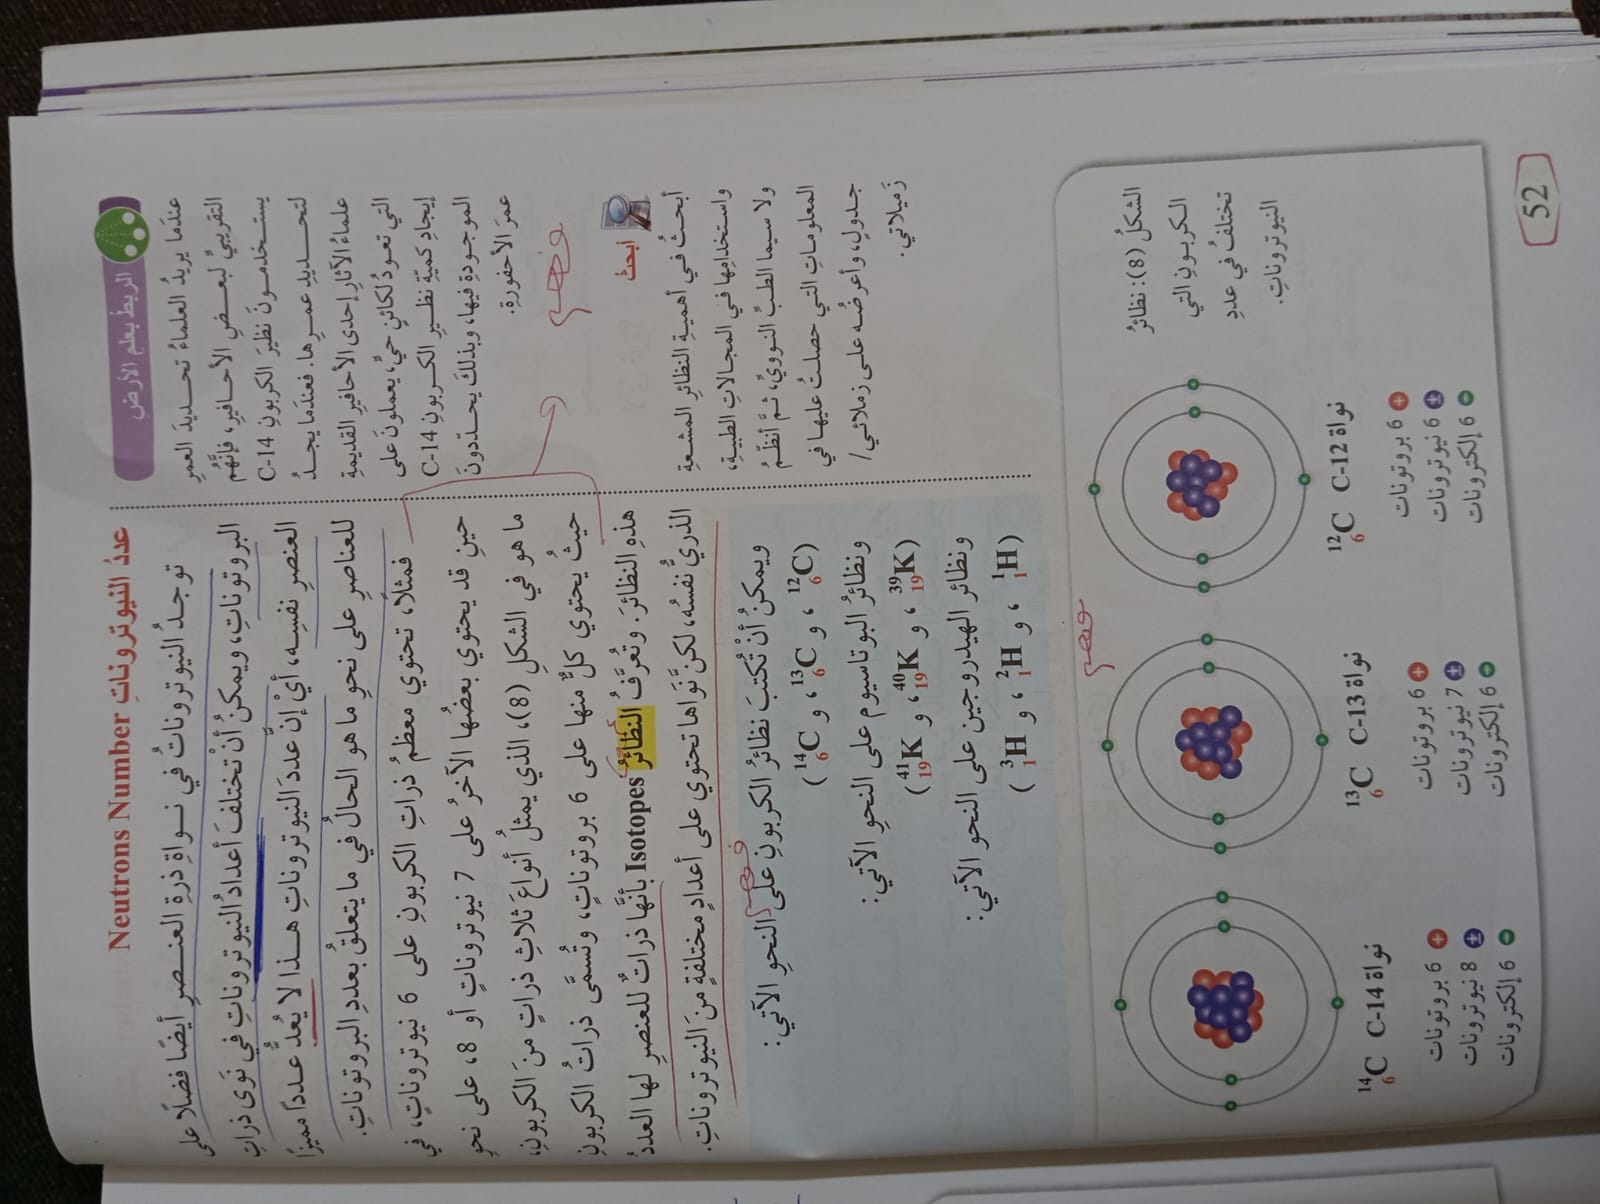 عددُ النيوتروناتِ Neutrons Number
توجدُ النيوتروناتُ في نواةِ ذرةِ العنصرِ أيضًا فضلًا على
البروتوناتِ، ويمكنُ أنْ تختلفَ أعدادُ النيوتروناتِ في نَوى ذراتِ
العنصرِ نفسِه، أيْ إنَّ عددَ النيوتروناتِ هذا لا يُعدُّ عددًا مميزًا
للعناصرِ على نحوِ ما هو الحالُ في ما يتعلقُ بعددِ البروتوناتِ.
فمثلًا، تحتوي معظمُ ذراتِ الكربونِ على 6 نيوتروناتٍ، في
حينِ قد يحتوي بعضُها الآخرُ على 7 نيوتروناتٍ أو 8، على نحوِ
ما هو في الشكلِ (8)، الذي يمثلُ أنواعَ ثلاثِ ذراتٍ منَ الكربونِ،
حيثُ يحتوي كلٌّ منها على 6 بروتوناتٍ، وتُسمَّى ذراتُ الكربونِ
هذهِ النظائرَ. وتُعرَّفُ النظائرُ Isotopes بأنَّها ذراتٌ للعنصرِ لها العددُ
الذريُّ نفسُه، لكنَّ نَواها تحتوي على أعدادٍ مختلفةٍ منَ النيوتروناتِ.
ويمكنُ أنْ تُكتبَ نظائرُ الكربونِ على النحوِ الآتي:
(¹⁴₆C و ¹³₆C ، ¹²₆C)
ونظائرُ البوتاسيوم على النحوِ الآتي:
(⁴¹₁₉K و ⁴⁰₁₉K ، ³⁹₁₉K)
ونظائر الهيدروجين على النحو الآتي:
(³₁H و ²₁H ، ¹₁H)
الربطُ بعلمِ الأرضِ
عندَما يريدُ العلماءُ تحديدَ العمرِ
التقريبيِّ لبعضِ الأحافيرِ، فإنَّهُم
يستخدمونَ نظيرَ الكربونِ C-14
لتحديدِ عمرِها. فعندَما يجدُ
علماءُ الآثارِ إحدى الأحافيرِ القديمةِ
التي تعودُ لكائنٍ حيٍّ، يعملونَ على
إيجادِ كميةِ نظيرِ الكربونِ C-14
الموجودةِ فيها، وبذلكَ يحدّدونَ
عمرَ الأحفورةِ.
أبحثُ
أبحثُ في أهميةِ النظائرِ المشعةِ
واستخدامِها في المجالاتِ الطبيةِ،
ولا سيما الطبُّ النوويُّ، ثمَّ أنظّمُ
المعلوماتِ التي حصلتُ عليها في
جدولٍ، وأعرضُه على زملائي/
زَميلاتي.
الشكلُ (8): نظائرُ
الكربونِ التي
تختلفُ في عددِ
النيوتروناتِ.
¹²₆C نواة C-12
6 بروتونات +
6 نيوترونات ±
6 إلكترونات −
¹³₆C نواة C-13
6 بروتونات +
7 نيوترونات ±
6 إلكترونات −
¹⁴₆C نواة C-14
6 بروتونات +
8 نيوترونات ±
6 إلكترونات −
52